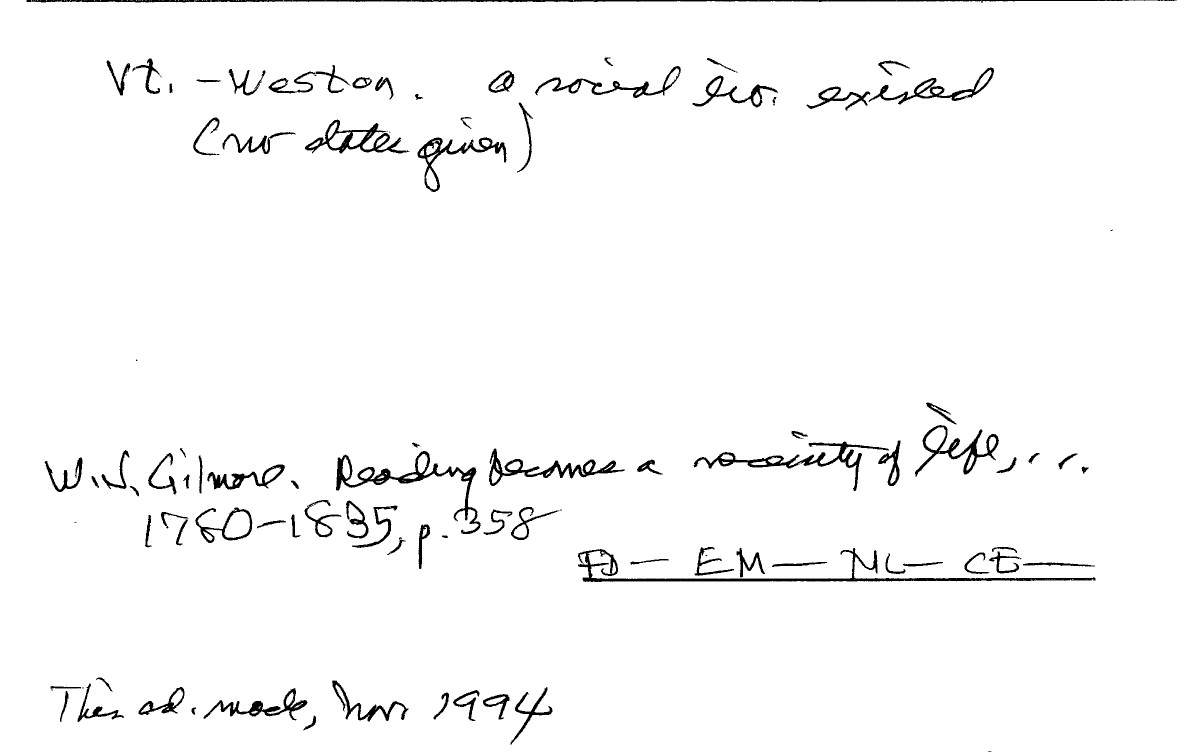 Vt. - Weston. a social lib. existed
(no dates given)
W.J. Gilmore. Reading becomes a necessity of life, ...
1780-1835, p. 358
FD - EM - NL - CE -
This ad. made, Nov 1994